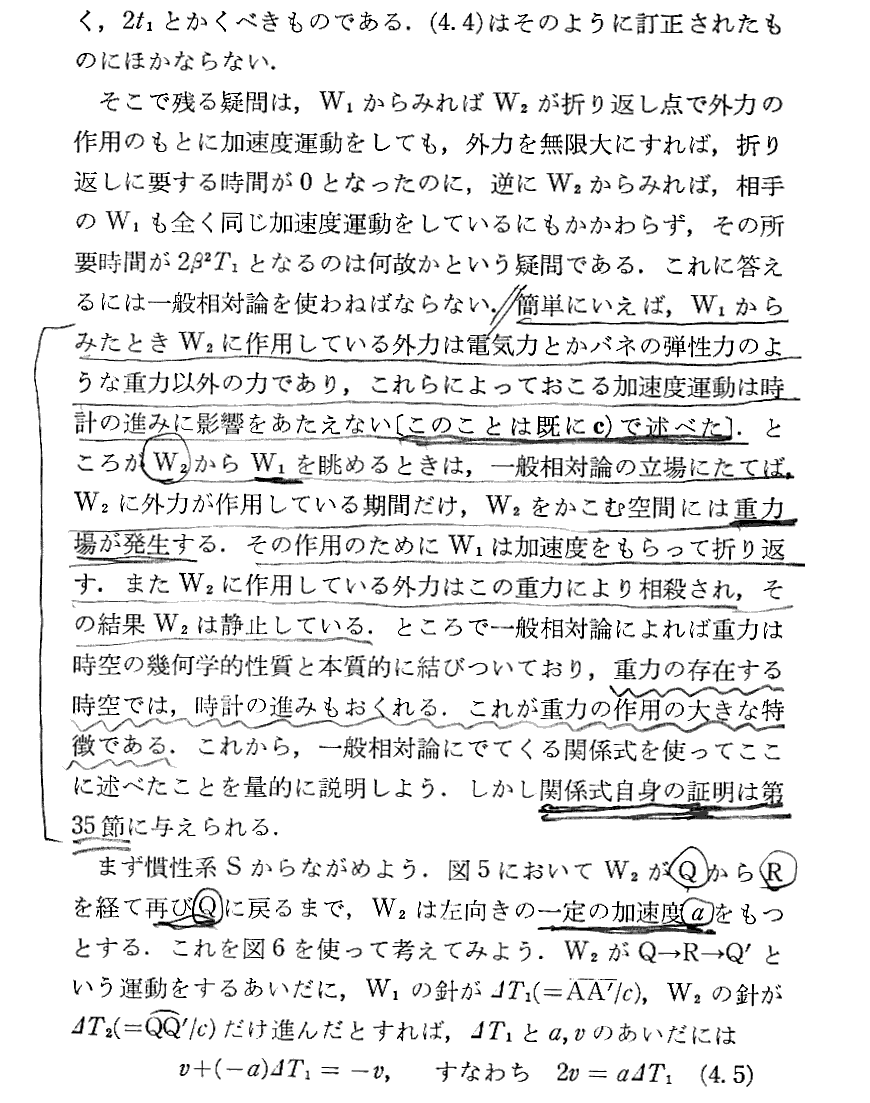 く，2t₁ とかくべきものである．(4.4)はそのように訂正されたも
のにほかならない．
そこで残る疑問は，W₁ からみれば W₂ が折り返し点で外力の
作用のもとに加速度運動をしても，外力を無限大にすれば，折り
返しに要する時間が 0 となったのに，逆に W₂ からみれば，相手
の W₁ も全く同じ加速度運動をしているにもかかわらず，その所
要時間が 2β²T₁ となるのは何故かという疑問である．これに答え
るには一般相対論を使わねばならない．簡単にいえば，W₁ から
みたとき W₂ に作用している外力は電気力とかバネの弾性力のよ
うな重力以外の力であり，これらによっておこる加速度運動は時
計の進みに影響をあたえない〔このことは既に c) で述べた〕．と
ころが W₂ から W₁ を眺めるときは，一般相対論の立場にたてば，
W₂ に外力が作用している期間だけ，W₂ をかこむ空間には重力
場が発生する．その作用のために W₁ は加速度をもらって折り返
す．また W₂ に作用している外力はこの重力により相殺され，そ
の結果 W₂ は静止している．ところで一般相対論によれば重力は
時空の幾何学的性質と本質的に結びついており，重力の存在する
時空では，時計の進みもおくれる．これが重力の作用の大きな特
徴である．これから，一般相対論にでてくる関係式を使ってここ
に述べたことを量的に説明しよう．しかし関係式自身の証明は第
35 節に与えられる．
まず慣性系 S からながめよう．図 5 において W₂ が Q から R
を経て再び Q に戻るまで，W₂ は左向きの一定の加速度 a をもつ
とする．これを図 6 を使って考えてみよう．W₂ が Q→R→Q′ と
いう運動をするあいだに，W₁ の針が ΔT₁(=A̅A̅′/c)，W₂ の針が
ΔT₂(=Q͡Q′/c) だけ進んだとすれば，ΔT₁ と a, v のあいだには
v+(−a)ΔT₁ = −v,　すなわち　2v = aΔT₁　(4.5)